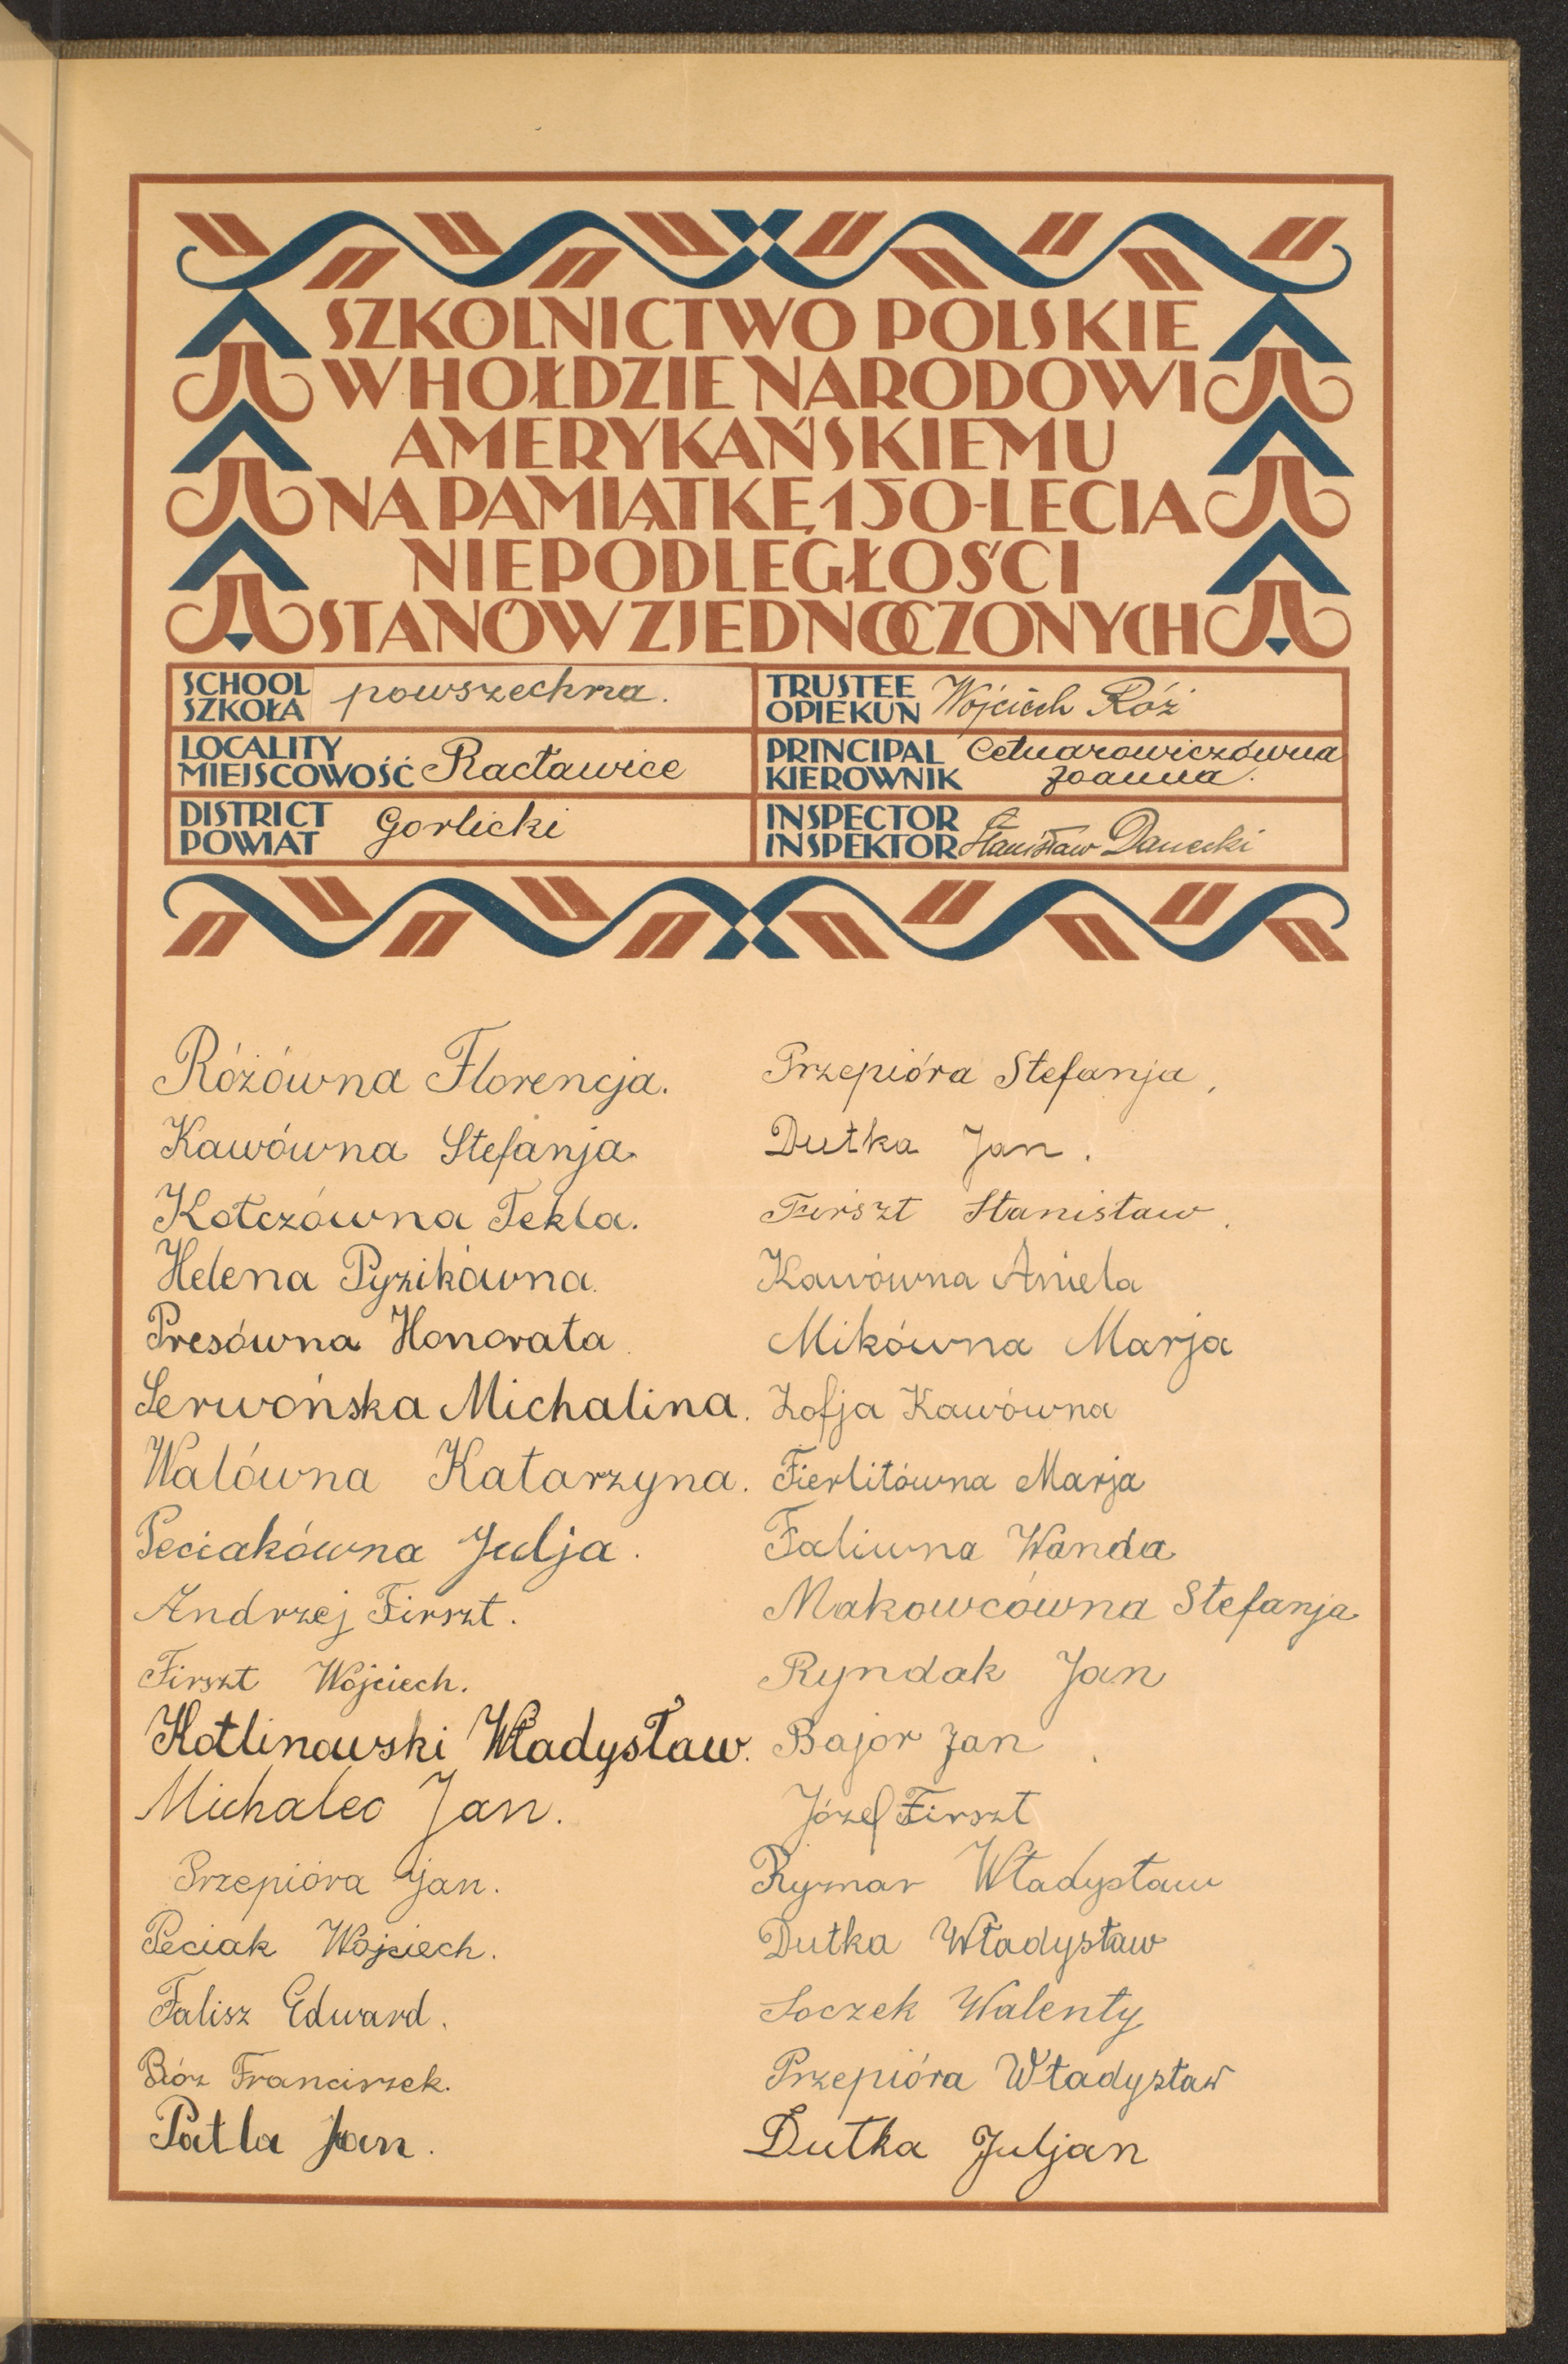 SZKOLNICTWO POLSKIE
W HOŁDZIE NARODOWI
AMERYKAŃSKIEMU
NA PAMIĄTKĘ 150-LECIA
NIEPODLEGŁOŚCI
STANÓW ZJEDNOCZONYCH
SCHOOL
SZKOŁA powszechna.
LOCALITY
MIEJSCOWOŚĆ Racławice
DISTRICT
POWIAT Gorlicki
TRUSTEE
OPIEKUN Wojciech Róż
PRINCIPAL Cetnarowiczówna
KIEROWNIK Joanna.
INSPECTOR
INSPEKTOR Stanisław Danecki
Różówna Florencja.
Kawówna Stefanja
Kotczówna Tekla.
Helena Pyzikówna.
Presówna Honorata.
Serwońska Michalina.
Walówna Katarzyna.
Peciakówna Julja.
Andrzej Firszt.
Firszt Wojciech.
Kotlinowski Władysław.
Michalec Jan.
Przepióra Jan.
Peciak Wojciech.
Falisz Edward.
Róz Franciszek.
Patla Jan.
Przepióra Stefanja,
Dutka Jan.
Firszt Stanisław.
Kawówna Aniela
Mikówna Marja
Zofja Kawówna
Fierlitówna Marja
Faliwna Wanda
Makowcówna Stefanja
Ryndak Jan
Bajor Jan
Józef Firszt
Rymar Władysław
Dutka Władysław
Soczek Walenty
Przepióra Władysław
Dutka Juljan